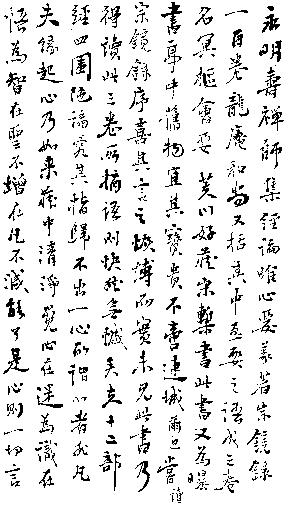 永明壽禪師集經論唯心義著宗鏡錄
一百卷龍庵和尚又括其中至要之語成三卷
名冥樞會要蕘川好藏宋槧書此書又為曝
書亭中舊物宜其寶貴不啻連城爾也嘗讀
宗鏡錄序喜其言之恢博而實未見此書乃
得讀此三卷所摘語則恢然無域矣夫十二部
經四圍陀論究其指歸不出一心所謂心者我凡
夫緣起心乃如來藏中清淨覺心在迷為識在
悟為智在聖不增在凡不減能了是心則一切言